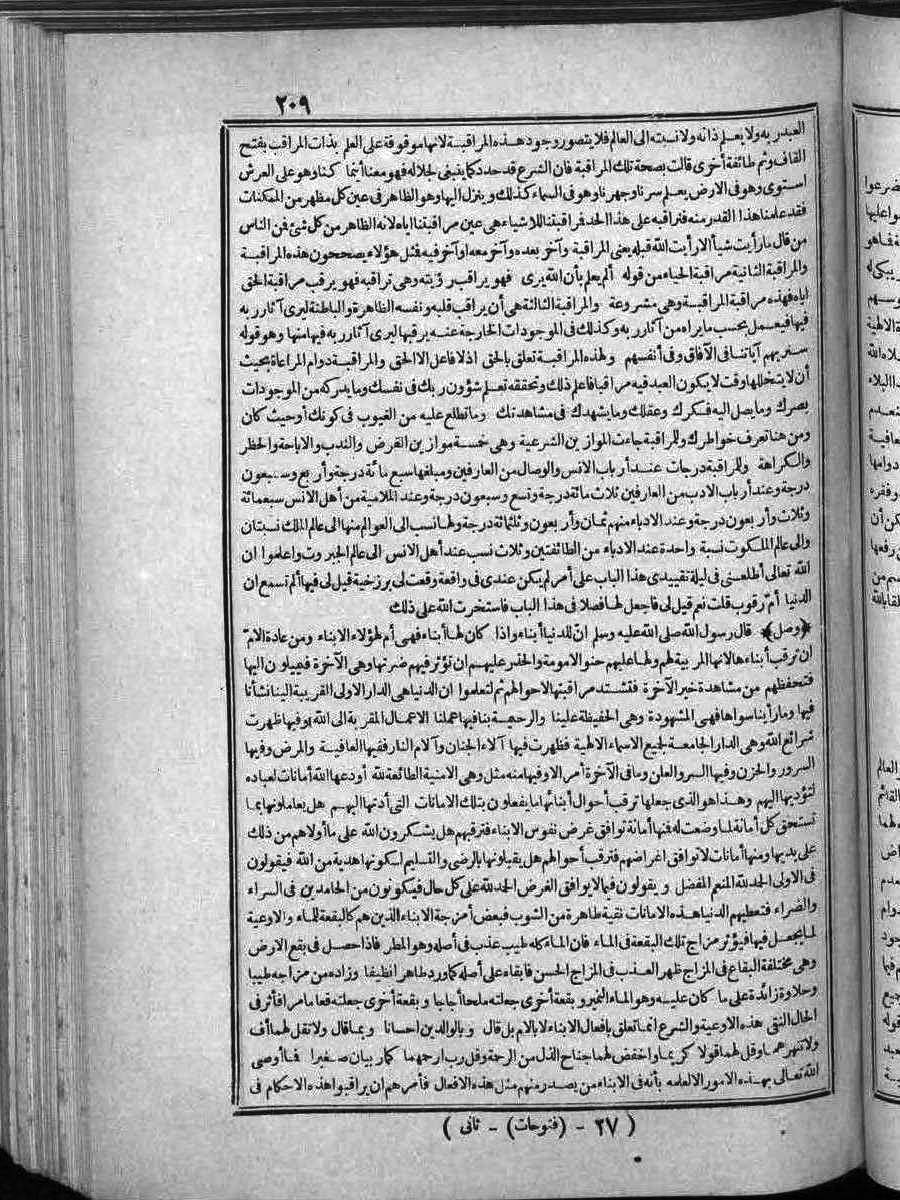 ٢٠٩
العبد ربه ولا يعلم ذاته ولا نسبته الى العالم فلا يتصور وجود هذه المراقبة لانها موقوفة على العلم بذات المراقب بفتح
القاف وثم طائفة أخرى قالت بصحة تلك المراقبة فان الشرع قد حدد كما ينبغى لجلاله فهو معنا أينما كنا وهو على العرش
استوى وهو فى الارض يعلم سرنا وجهرنا وهو فى السماء كذلك وينزل الينا وهو الظاهر فى عين كل مظهر من الممكنات
فقد علمنا هذا القدر منه فنراقبه على هذا الحد فراقبتنا للاشياء هى عين مراقبتنا اياه لانه الظاهر من كل شئ فن الناس
من قال ما رأيت شيأ الا رأيت الله قبله يعنى المراقبة وآخر بعده وآخر معه وآخر فيه فثل هؤلاء يصححون هذه المراقبة
والمراقبة الثانية مراقبة الحياء من قوله ألم يعلم بأن الله يرى فهو يراقب رؤيته وهى تراقبه فهو يرقب مراقبة الحق
اياه فهذه مراقبة المراقبة وهى مشروعة والمراقبة الثالثة هى أن يراقب قلبه ونفسه الظاهرة والباطنة ليرى آثار ربه
فيها فيعمل بحسب ما يراه من آثار ربه وكذلك فى الموجودات الخارجة عنه يرقبها ليرى آثار ربه فيها منها وهو قوله
سنريهم آياتنا فى الآفاق وفى أنفسهم ولهذه المراقبة تعلق بالحق اذلا فاعل الا الحق والمراقبة دوام المراعاة بحيث
أن لا يتخللها وقت لا يكون العبد فيه مراقبا فاعلم ذلك وتحققه تعلم شؤون ربك فى نفسك وما يدركه من الموجودات
بصرك وما يصل اليه فكرك وعقلك وما يشهدك فى مشاهدتك وما تطلع عليه من الغيوب فى كونك أو حيث كان
ومن هنا تعرف خواطرك وللمراقبة جاءت الموازين الشرعية وهى خمسة موازين الفرض والندب والاباحة والحظر
والكراهة وللمراقبة درجات عند أرباب الانس والوصال من العارفين ومبلغها سبع مائة درجة وأربع وسبعون
درجة وعند أرباب الادب من العارفين ثلاث مائة درجة وتسع وسبعون درجة وعند الملامية من أهل الانس سبعمائة
وثلاث وأربعون درجة وعند الادباء منهم ثمان وأربعون وثلثمائة درجة ولها نسب الى العوالم منها الى عالم الملك نسبتان
والى عالم الملكوت نسبة واحدة عند الادباء من الطائفتين وثلاث نسب عند أهل الانس الى عالم الجبروت واعلموا ان
الله تعالى أطلعنى فى ليلة تقييدى هذا الباب على أمر لم يكن عندى فى واقعة وقعت لى برزخية قيل لى فيها ألم تسمع ان
الدنيا أم رقوب قلت نعم قيل لى فاجعل لها فصلا فى هذا الباب فاستخرت الله على ذلك
﴿وصل﴾ قال رسول الله صلى الله عليه وسلم ان للدنيا أبناء واذا كان لها أبناء فهى أم لهؤلاء الابناء ومن عادة الام
ان ترقب أبناءها لانها المربية لهم ولها عليهم حنو الامومة والحذر عليهم ان تؤثر فيهم ضرتها وهى الآخرة فيميلون اليها
فتحفظهم من مشاهدة خير الآخرة فتشتد مراقبتها لاحوالهم ثم لتعلموا ان الدنيا هى الدار الاولى القريبة الينا نشأنا
فيها وما رأينا سواها فهى المشهودة وهى الحفيظة علينا والرحيمة بنا فيها عملنا الاعمال المقربة الى الله وفيها ظهرت
شرائع الله وهى الدار الجامعة لجميع الاسماء الالهية فظهرت فيها آلاء الجنان وآلام النار ففيها العافية والمرض وفيها
السرور والحزن وفيها السر والعلن وما فى الآخرة أمر الا وفيها منه مثل وهى الامينة الطائعة لله أودعها الله أمانات لعباده
لتؤديها اليهم وهذا هو الذى جعلها ترقب أحوال أبنائها ما يفعلون بتلك الامانات التى أدتها اليهم هل يعاملونها بما
تستحق كل أمانة لما وضعت له فنها أمانة توافق غرض نفوس الابناء فترقبهم هل يشكرون الله على ما أولاهم من ذلك
على يديها ومنها أمانات لا توافق اغراضهم فترقب أحوالهم هل يقبلونها بالرضى والتسليم لكونها هدية من الله فيقولون
فى الاولى الحمد لله المنعم المفضل ويقولون فيما لا يوافق الغرض الحمد لله على كل حال فيكونون من الحامدين فى السراء
والضراء فتعطيهم الدنيا هذه الامانات نقية طاهرة من الشوب فبعض أمزجة الابناء الذين هم كالبقعة للماء والاوعية
لما يجعل فيها فيؤثر مزاج تلك البقعة فى الماء فان الماء كله طيب عذب فى أصله وهو المطر فاذا حصل فى بقع الارض
وهى مختلفة البقاع فى المزاج ظهر العذب فى المزاج الحسن فابقاه على أصله كما ورد طاهرا نظيفا وزاده من مزاجه طيبا
وحلاوة زائدة على ما كان عليه وهو الماء النمير وبقعة أخرى جعلته ملحا أجاجا وبقعة أخرى جعلته قعاما مرا فأثر فى
الحال النقى هذه الاوعية والشرع انما تعلق بافعال الابناء لا بالام بل قال وبالوالدين احسانا وبما قال ولا تقل لهما أف
ولا تنهرهما وقل لهما قولا كريما واخفض لهما جناح الذل من الرحمة وقل رب ارحمهما كما ربيان صغيرا فاأوصى
الله تعالى بهذه الامور الا لعلمه بأنه فى الابناء من يصدر منهم مثل هذه الافعال فأمرهم ان يراقبوا هذه الاحكام فى
( ٢٧ - (فتوحات) - ثانى )